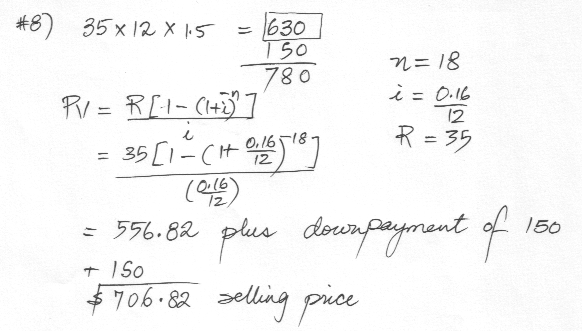 #8) 35 x 12 x 1.5 = 630
150
780
n = 18
i = 0.16/12
R = 35
PV = R[1-(1+i)^-n]/i
= 35[1-(1+0.16/12)^-18]/(0.16/12)
= 556.82 plus downpayment of 150
+ 150
$706.82 selling price